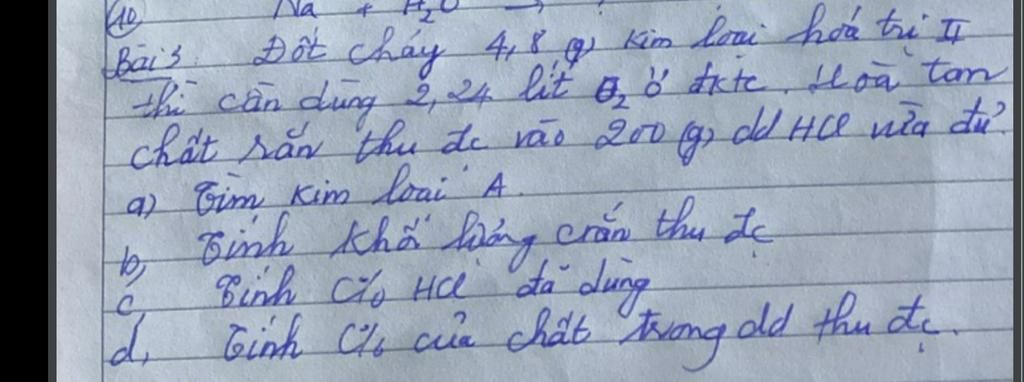 Na + H2O →
Bài 3. Đốt cháy 4,8 (g) kim loại hoá trị II
thì cần dùng 2,24 lít O2 ở đktc. Hoà tan
chất rắn thu đc vào 200 (g) dd HCl vừa đủ.
a) Tìm kim loại A.
b, Tính khối lượng crắn thu đc
c, Tính C% HCl đã dùng
d, Tính C% của chất trong dd thu đc.